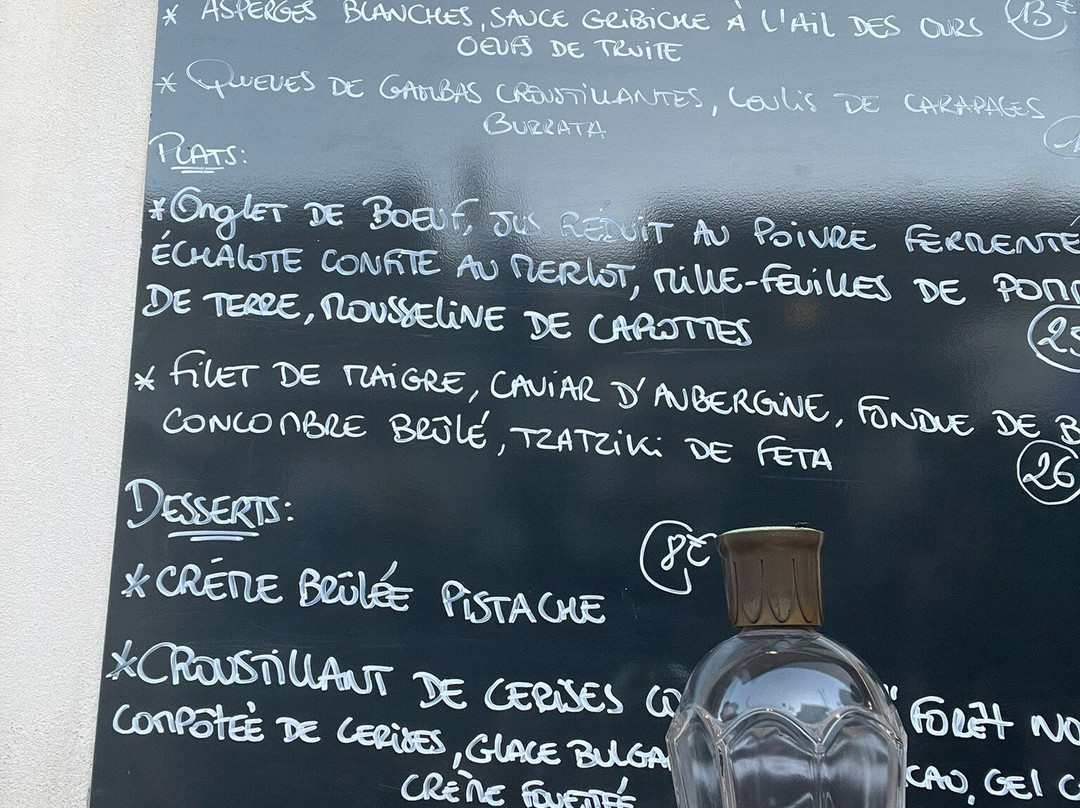 * ASPERGES BLANCHES, SAUCE GRIBICHE À L'AIL DES OURS 13€
OEUFS DE TRUITE
* QUEUES DE GAMBAS CROUSTILLANTES, COULIS DE CARAPACES
BURRATA
PLATS:
* ONGLET DE BOEUF, JUS RÉDUIT AU POIVRE FERMENTÉ
ÉCHALOTE CONFITE AU MERLOT, MILLE-FEUILLES DE POMM
DE TERRE, MOUSSELINE DE CAROTTES
* FILET DE MAIGRE, CAVIAR D'AUBERGINE, FONDUE DE B
CONCOMBRE BRÛLÉ, TZATZIKI DE FETA 26
DESSERTS:
8€
* CRÉME BRÛLÉE PISTACHE
* CROUSTILLANT DE CERISES CO " FORÊT NO
COMPÔTÉE DE CERISES, GLACE BULGA CAO, GEL C
CRÈME FOUETTÉE